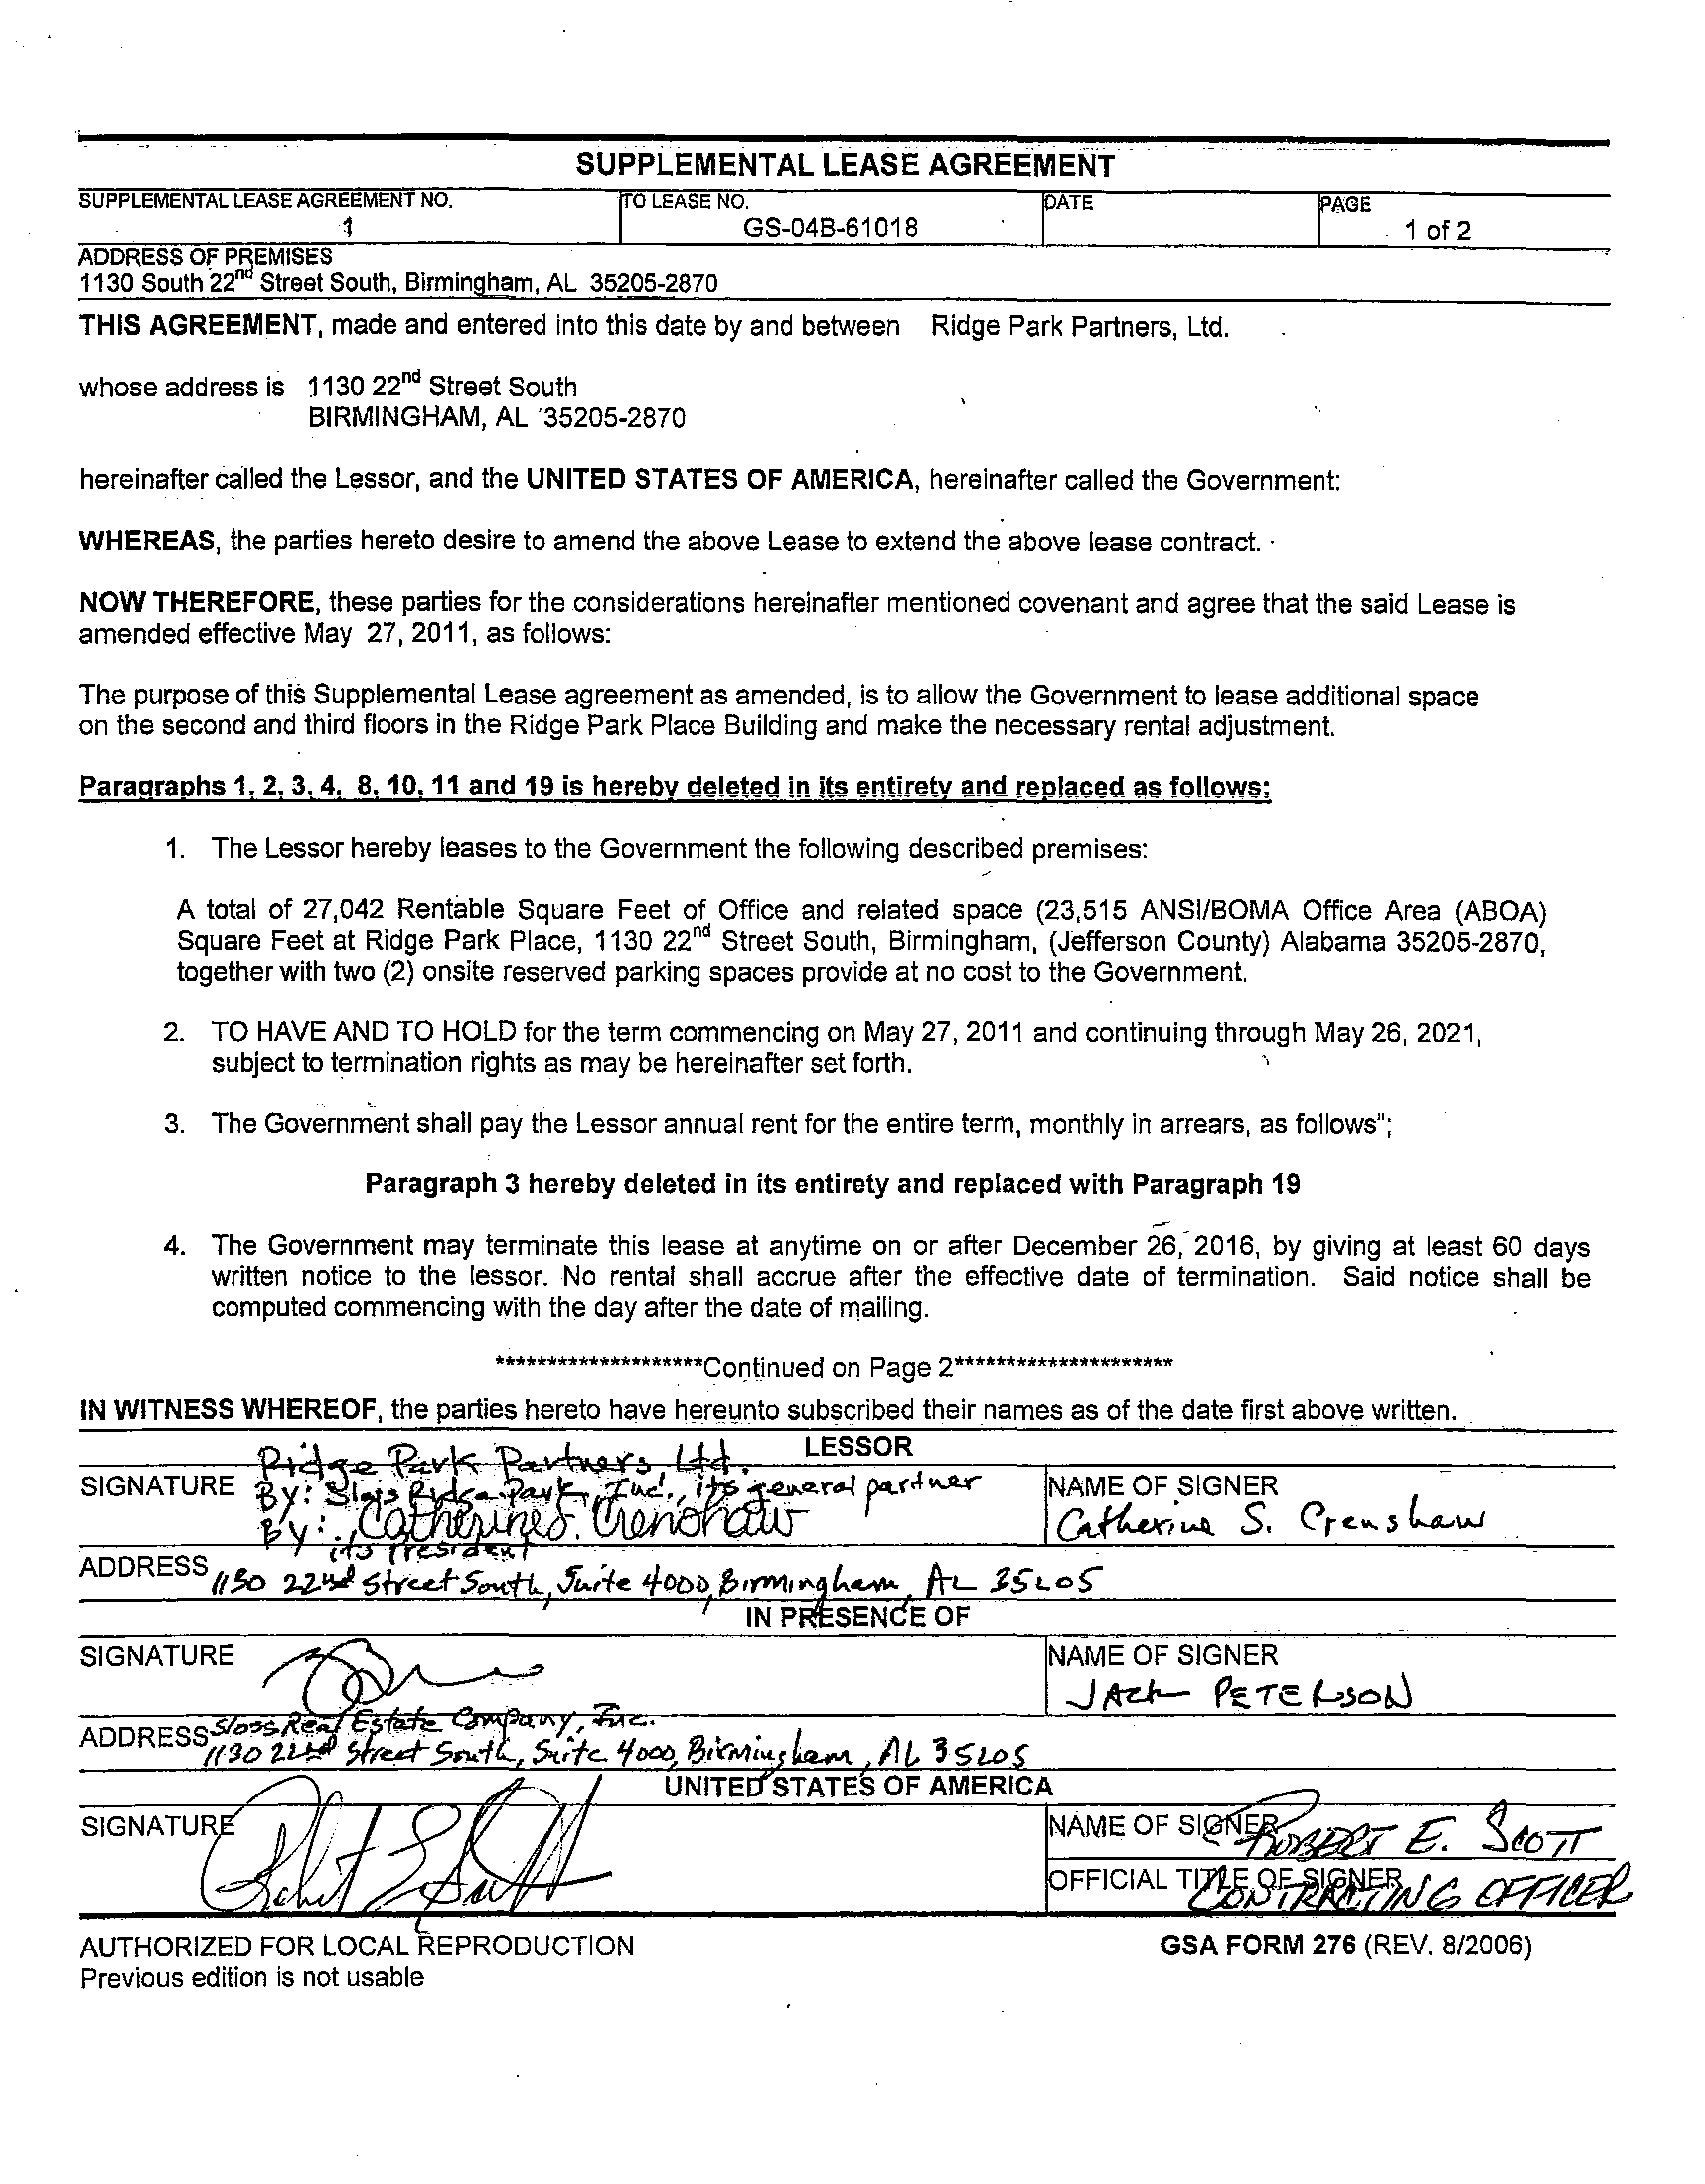 SUPPLEMENTAL LEASE AGREEMENT
SUPPLEMENTAL LEASE AGREEMENT NO. TO LEASE NO. DATE PAGE
1 GS-04B-61018 1 of 2
ADDRESS OF PREMISES
1130 South 22nd Street South, Birmingham, AL 35205-2870
THIS AGREEMENT, made and entered into this date by and between Ridge Park Partners, Ltd.
whose address is 1130 22nd Street South
BIRMINGHAM, AL 35205-2870
hereinafter called the Lessor, and the UNITED STATES OF AMERICA, hereinafter called the Government:
WHEREAS, the parties hereto desire to amend the above Lease to extend the above lease contract.
NOW THEREFORE, these parties for the considerations hereinafter mentioned covenant and agree that the said Lease is
amended effective May 27, 2011, as follows:
The purpose of this Supplemental Lease agreement as amended, is to allow the Government to lease additional space
on the second and third floors in the Ridge Park Place Building and make the necessary rental adjustment.
Paragraphs 1, 2, 3, 4, 8, 10, 11 and 19 is hereby deleted in its entirety and replaced as follows:
1. The Lessor hereby leases to the Government the following described premises:
A total of 27,042 Rentable Square Feet of Office and related space (23,515 ANSI/BOMA Office Area (ABOA)
Square Feet at Ridge Park Place, 1130 22nd Street South, Birmingham, (Jefferson County) Alabama 35205-2870,
together with two (2) onsite reserved parking spaces provide at no cost to the Government.
2. TO HAVE AND TO HOLD for the term commencing on May 27, 2011 and continuing through May 26, 2021,
subject to termination rights as may be hereinafter set forth.
3. The Government shall pay the Lessor annual rent for the entire term, monthly in arrears, as follows";
Paragraph 3 hereby deleted in its entirety and replaced with Paragraph 19
4. The Government may terminate this lease at anytime on or after December 26, 2016, by giving at least 60 days
written notice to the lessor. No rental shall accrue after the effective date of termination. Said notice shall be
computed commencing with the day after the date of mailing.
********************Continued on Page 2*********************
IN WITNESS WHEREOF, the parties hereto have hereunto subscribed their names as of the date first above written.
LESSOR
Ridge Park Partners, Ltd.
SIGNATURE By: Sloss Ridge Park, Inc., its general partner NAME OF SIGNER
By: Catherine S. Crenshaw Catherine S. Crenshaw
its President
ADDRESS 1130 22nd Street South, Suite 4000, Birmingham, AL 35205
IN PRESENCE OF
SIGNATURE NAME OF SIGNER
JACK PETERSON
ADDRESS Sloss Real Estate Company, Inc.
1130 22nd Street South, Suite 4000, Birmingham, AL 35205
UNITED STATES OF AMERICA
SIGNATURE Robert E Scott NAME OF SIGNER ROBERT E. SCOTT
OFFICIAL TITLE OF SIGNER CONTRACTING OFFICER
AUTHORIZED FOR LOCAL REPRODUCTION GSA FORM 276 (REV. 8/2006)
Previous edition is not usable